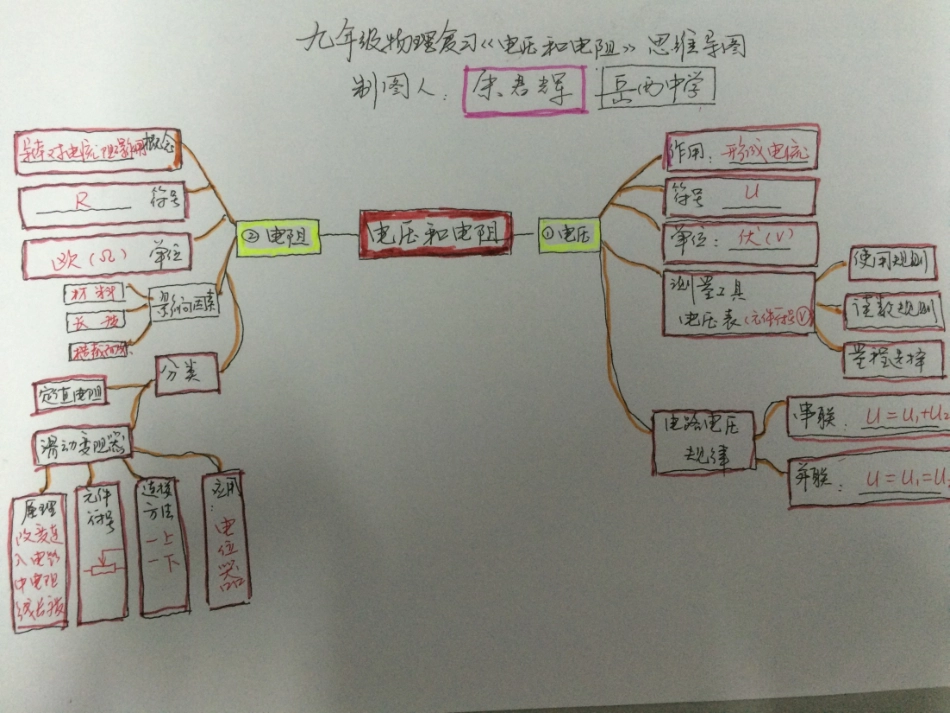 九年级物理复习《电压和电阻》思维导图
制图人：余君辉 岳西中学
电压和电阻
①电压
作用：形成电流
符号 U
单位：伏(V)
测量工具
电压表(元件符号Ⓥ)
使用规则
读数规则
量程选择
电路电压
规律
串联：U=U₁+U₂
并联：U=U₁=U₂
②电阻
导体对电流阻碍作用 概念
R 符号
欧(Ω) 单位
影响因素
材料
长度
横截面积
分类
定值电阻
滑动变阻器
原理
改变连
入电路
中电阻
线长度
元件
符号
连接
方法
一上
一下
应用：
电
位
器